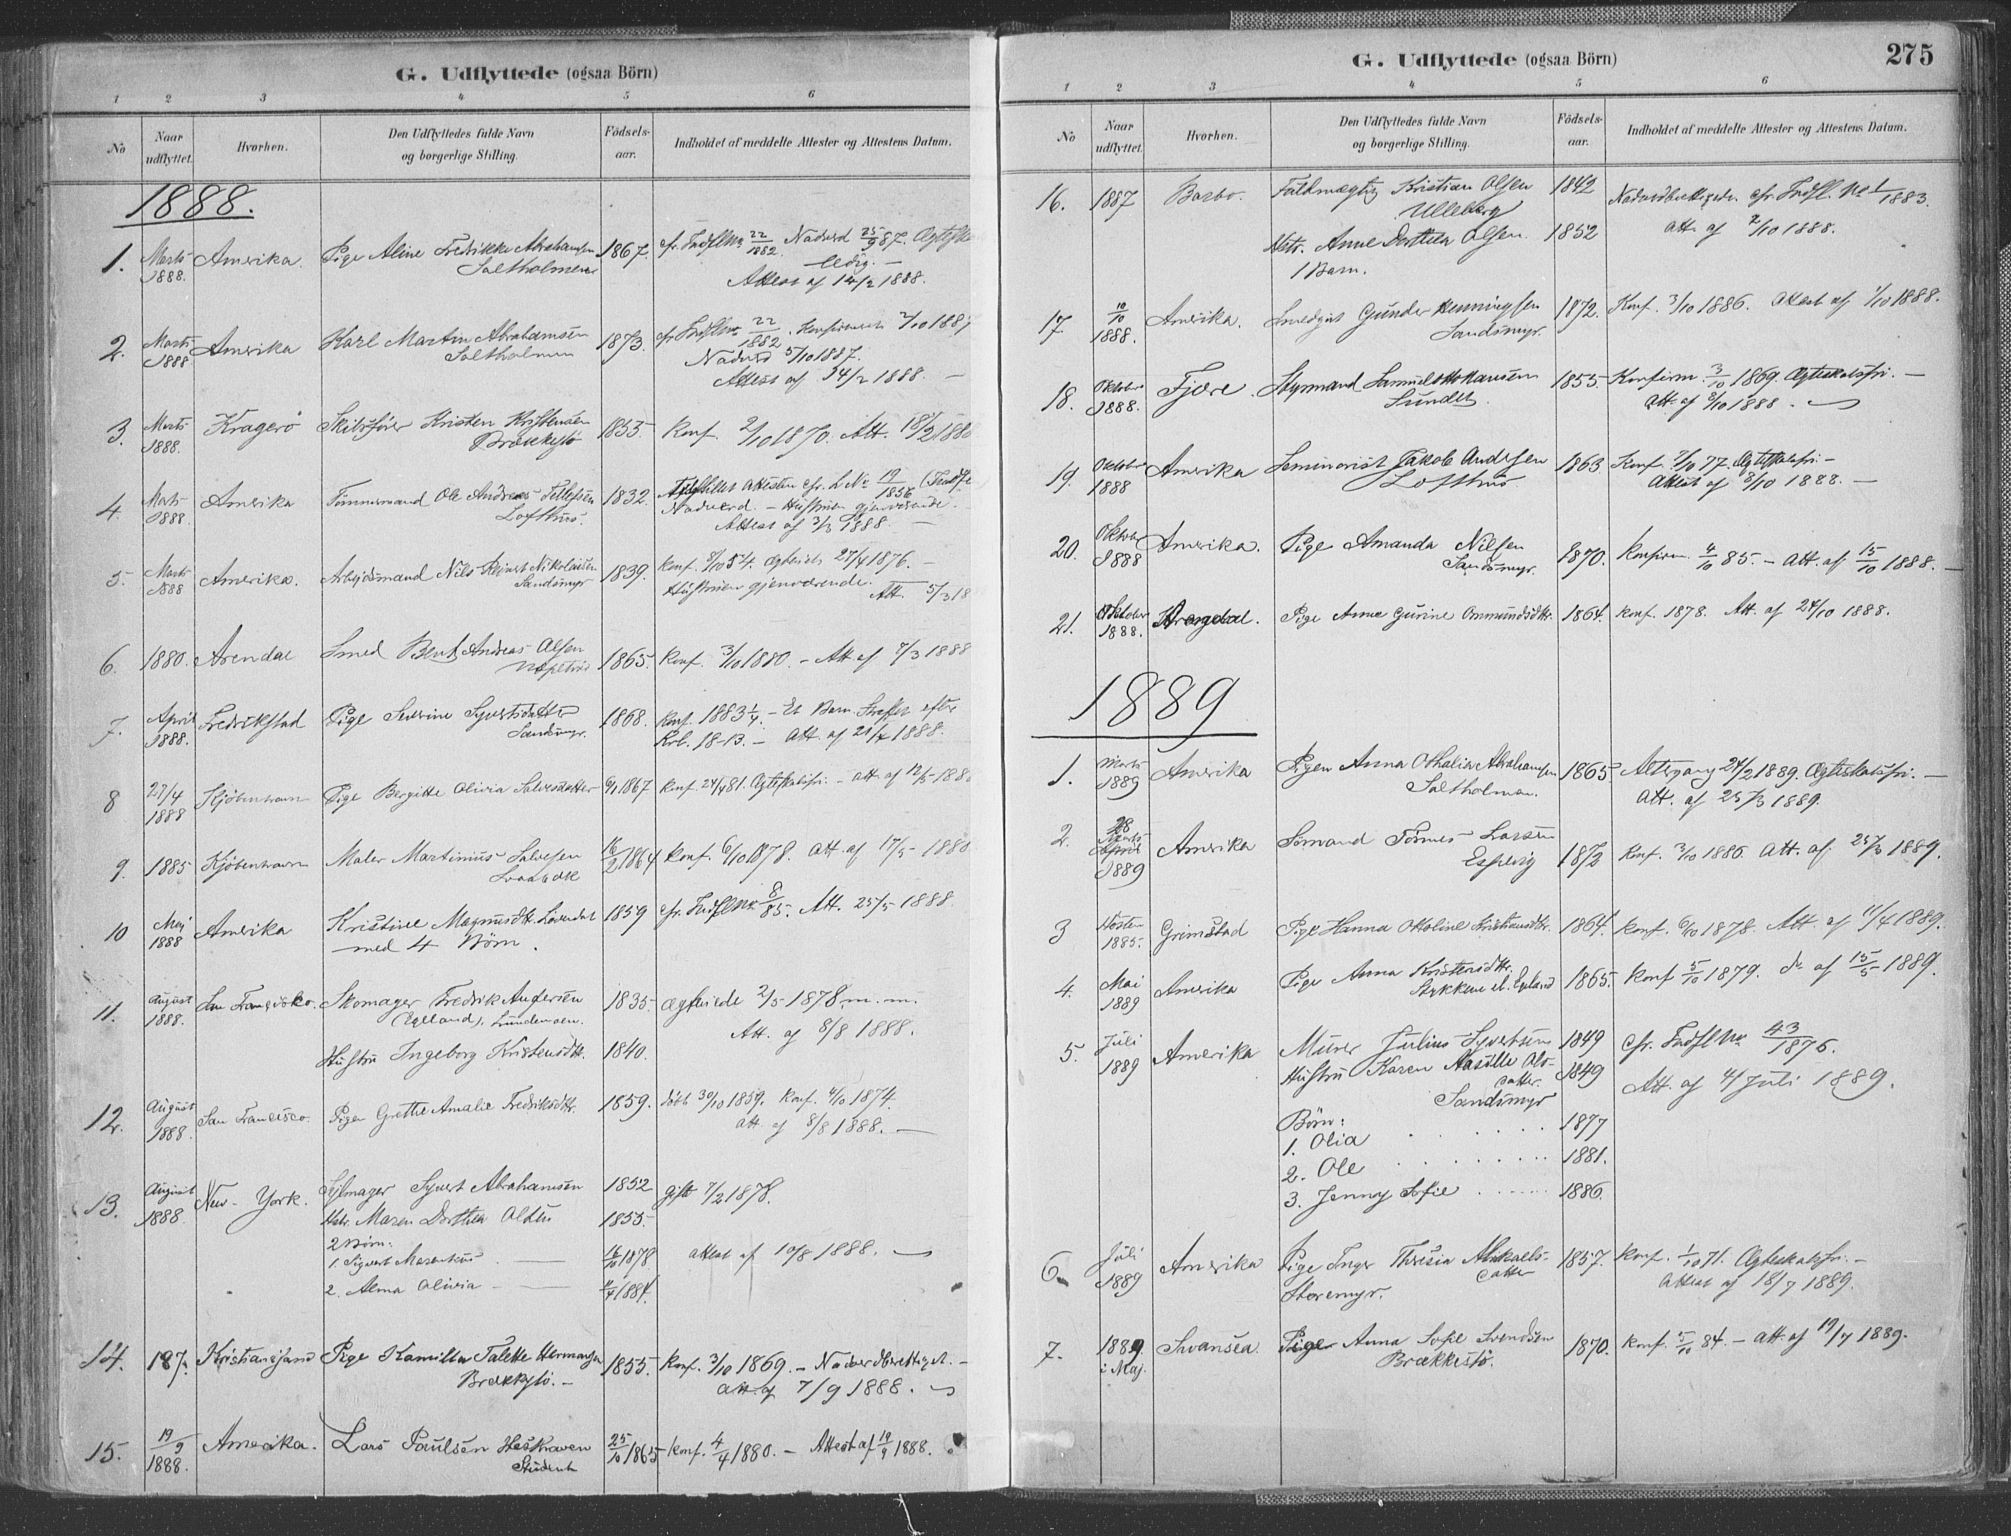 G. Udflyttede (ogsaa Börn)
1 2 3 4 5 6
No
Naar udflyttet.
Hvorhen.
Den Udflyttedes fulde Navn og borgerlige Stilling.
Födsels-aar.
Indholdet af meddelte Attester og Attestens Datum.
1888.
1. Marts 1888. Amerika. Pige Aline Fredrikke Abrahamsen 1867. cfr. Indfl. No 22/1882. Nadverd 25/9 87.
Saltholmen ledig. —
Attest af 14/2 1888.
2. Marts 1888 Amerika Karl Martin Abrahamsen 1873. cfr. Indfl. No 22/1882. Konfirmeret 2/10 1887
Saltholmen Nadverd 5/10 1887.
Attest af 14/2 1888. —
3. Marts 1888. Kragerö Skibsfører Kristen Kristensen 1855. Konf. 2/10 1870. Att. 18/2 1888
Brækkestø
4. Marts 1888. Amerika Tømmermand Ole Andreas Tellefsen 1832. attesten cfr. L No 19/1856 (Indfl.
Lofthus. Nadverd. — Hustruen gjenværende.
Attest af 3/3 1888. —
5. Marts 1888 Amerika. Arbejdsmand Nils Nikolaisen 1839. Konf. 8/10 54. Ægteviet 27/4 1876. —
Sandsmyr Hustruen gjenværende. Att. 5/3 18
6. 1880. Arendal Smed Bent Andreas Olsen 1865. Konf. 3/10 1880. — Att. af 7/3 1888
7. April 1888. Fredrikstad Pige Severine Syvertsdatter 1868. Konf. 1883 1/4. — Et Barn. Straffet efter
Sandsmyr. Krl. 18-13. — Att. af 21/4 1888.
8 27/4 1888 Kjöbenhavn Pige Bergitte Olivia Salvesdatter 9/1 1867 Konf. 24/4 81. Ægteskabsfri. — Att. af 12/5 1888
9. 1885 Kjöbenhavn Maler Martinius Salvesen 16/2 1864 Konf. 6/10 1878. Att. af 17/5 1888
10 Maj 1888 Amerika Kristine Magnusdtr. Løvendal 1859 cfr. Indfl. No 8/85. Att. 25/5 1888.
med 4 Börn.
11. August 1888. San Francisko. Skomager Fredrik Andersen 1835 ægteviede 2/5 1878 m. m.
(Egeland), Att. af 8/8 1888.
Hustru Ingeborg Kristensdtr. 1840.
12. August 1888. San Francisco. Pigen Grethe Amalie Fredriksdtr. 1859. døbt 30/10 1859. Konf. 4/10 1874.
Att. af 8/8 1888. —
13. August 1888. New-York. Sejlmager Syvert Abrahamsen 1852 gift 7/2 1878.
Hstr. Maren Dorthea Olsen 1855
2 Börn:
1. Sigvert Marentius — 16/10 1878 Attest af 10/8 1888. —
2. Alma Olivia — 4/4 1884.
14. 187 Kristianssand Pige Kamilla Talette Hermansen 1855. Konf. 3/10 1869. — Nadverdberettiget. —
Brækkestø. — Att. af 7/9 1888.
15. 19/9 1888. Amerika. Lars Paulsen Heskraven 25/10 1865 Konf. 4/4 1880. — Attest af 19/9 1888.
Student
G. Udflyttede (ogsaa Börn) 275
1 2 3 4 5 6
No
Naar udflyttet.
Hvorhen.
Den Udflyttedes fulde Navn og borgerlige Stilling.
Födsels-aar.
Indholdet af meddelte Attester og Attestens Datum.
16. 1887 Barbo. Fuldmægtig Kristian Olsen 1842 Nadverdberettigede. cfr. Indfl. No 1/1883.
Ulleberg Att. af 2/10 1888.
Hstr. Anne Dorthea Olsen. 1852
1 Barn.
17. 10/10 1888. Amerika. Smedgut Gunder Henningsen 1872. Konf. 3/10 1886. Attest af 1/10 1888.
Sandsmyr.
18. Oktober 1888. Fjære. Styrmand Samuel Otto Hansen 1855 Konfirm. 3/10 1869. Ægteskabsfri. —
Sundet. Att. af 8/10 1888.
19. Oktober 1888 Amerika Seminarist Jakob Andersen 1863. Konf. 7/10 77. Ægteskabsfri —
Lofthus. Attest af 8/10 1888. —
20. Oktob. 1888 Amerika. Pige Amanda Nilsen 1870. Konfirm. 4/10 85. — Att. af 15/10 1888. —
Sandsmyr.
21. Oktober 1888. Pige Anne Gurine Ommundsdtr. 1864. Konf. 1878. Att. af 24/10 1888.
1889
1. Marts 1889 Amerika Pigen Anna Othalia Abrahamsen 1865 Altergang 24/2 1889. Ægteskabsfri. —
Saltholmen. Att. af 25/3 1889.
2. 28 Marts April 1889 Amerika Sømand Tönnes Larsen 1872 Konf. 3/10 1886. Att. af 25/3 1889.
Espevig
3 Høsten 1885. Grimstad Pige Hanna Ottoline Kristiansdtr. 1864. Konf. 6/10 1878. Att. af 11/4 1889.
4. Mai 1889 Amerika Pige Anna Kristensdtr. 1865. Konf 5/10 1879. do af 15/5 1889.
Stykkene
5. Juli 1889 Amerika Murer Julius Syvertsen 1849 cfr. Indfl. No 43/1876.
Hustru Karen Olsdatter. 1849 Att. af 4/Juli 1889.
Sandsmyr
Börn:
1. Olia 1877
2. Ole 1881.
3. Jenny Sofie 1886.
6. Juli 1889 Amerika Pige Inger Thresia Mikaelsdatter 1857. Konf. 1/10 71. Ægteskabsfri. —
Storemyr. Attest af 18/7 1889.
7. 1889. i Maj. Svansea. Pige Anna Sofie Svendsen 1870. Konf. 5/10 84. — Att. af 19/7 1889.
Brækkestø.